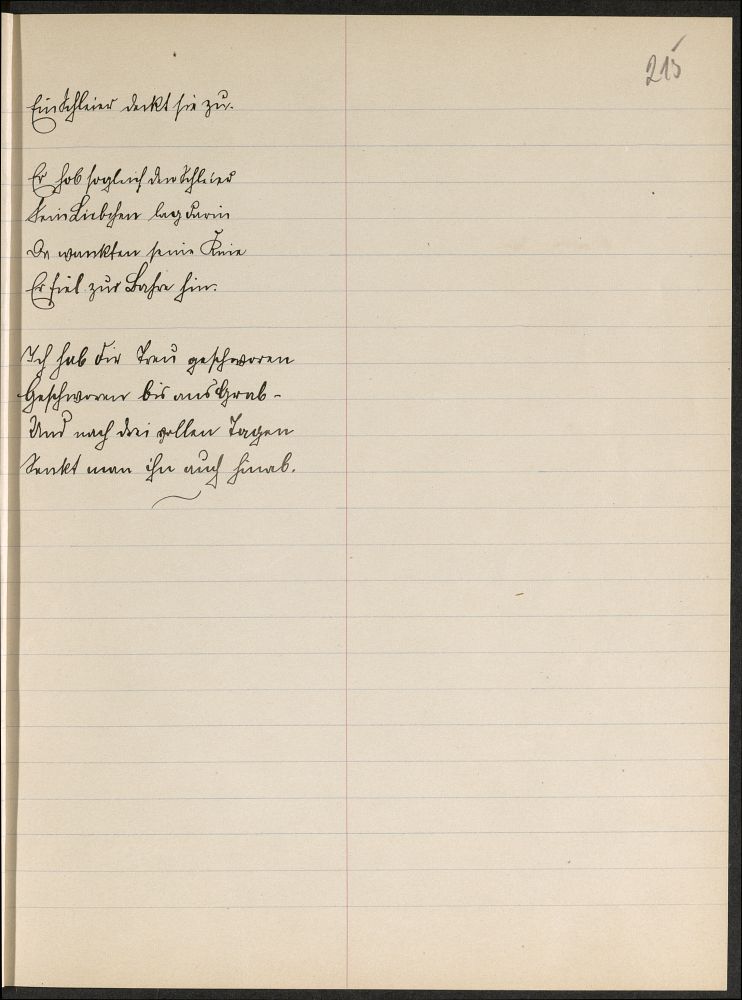 215
Ein Schleier deckt sie zu.
Er hob sogleich den Schleier
Sein Liebchen lag darin
Da wankten seine Knie
Er fiel zur Bahre hin.
Ich hab dir Treu geschworen
Geschworen bis ans Grab -
Und nach drei vollen Tagen
Senkt man ihn auch hinab.